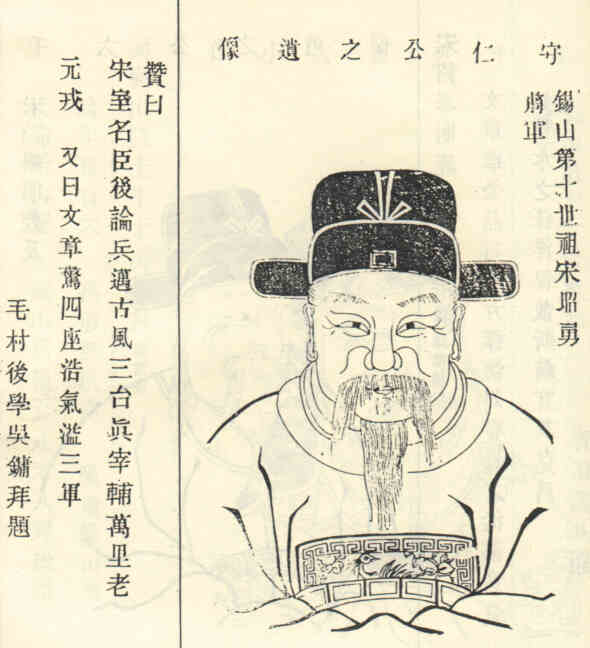 守仁公之遺像
錫山第十世祖宋昭勇
將軍
贊曰
宋室名臣後論兵邁古風三台眞宰輔萬里老
元戎　又曰文章驚四座浩氣溢三軍
毛村後學吳鏞拜題